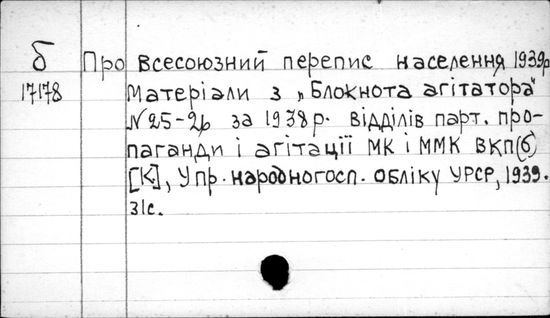 б Про всесоюзний перепис населення 1939р
17178 Матеріали з „Блокнота агітатора"
№25-26 за 1938р. відділів парт. про-
паганди і агітації МК і ММК ВКП(б)
[К], Упр. народногосп. обліку УРСР, 1939.
31с.